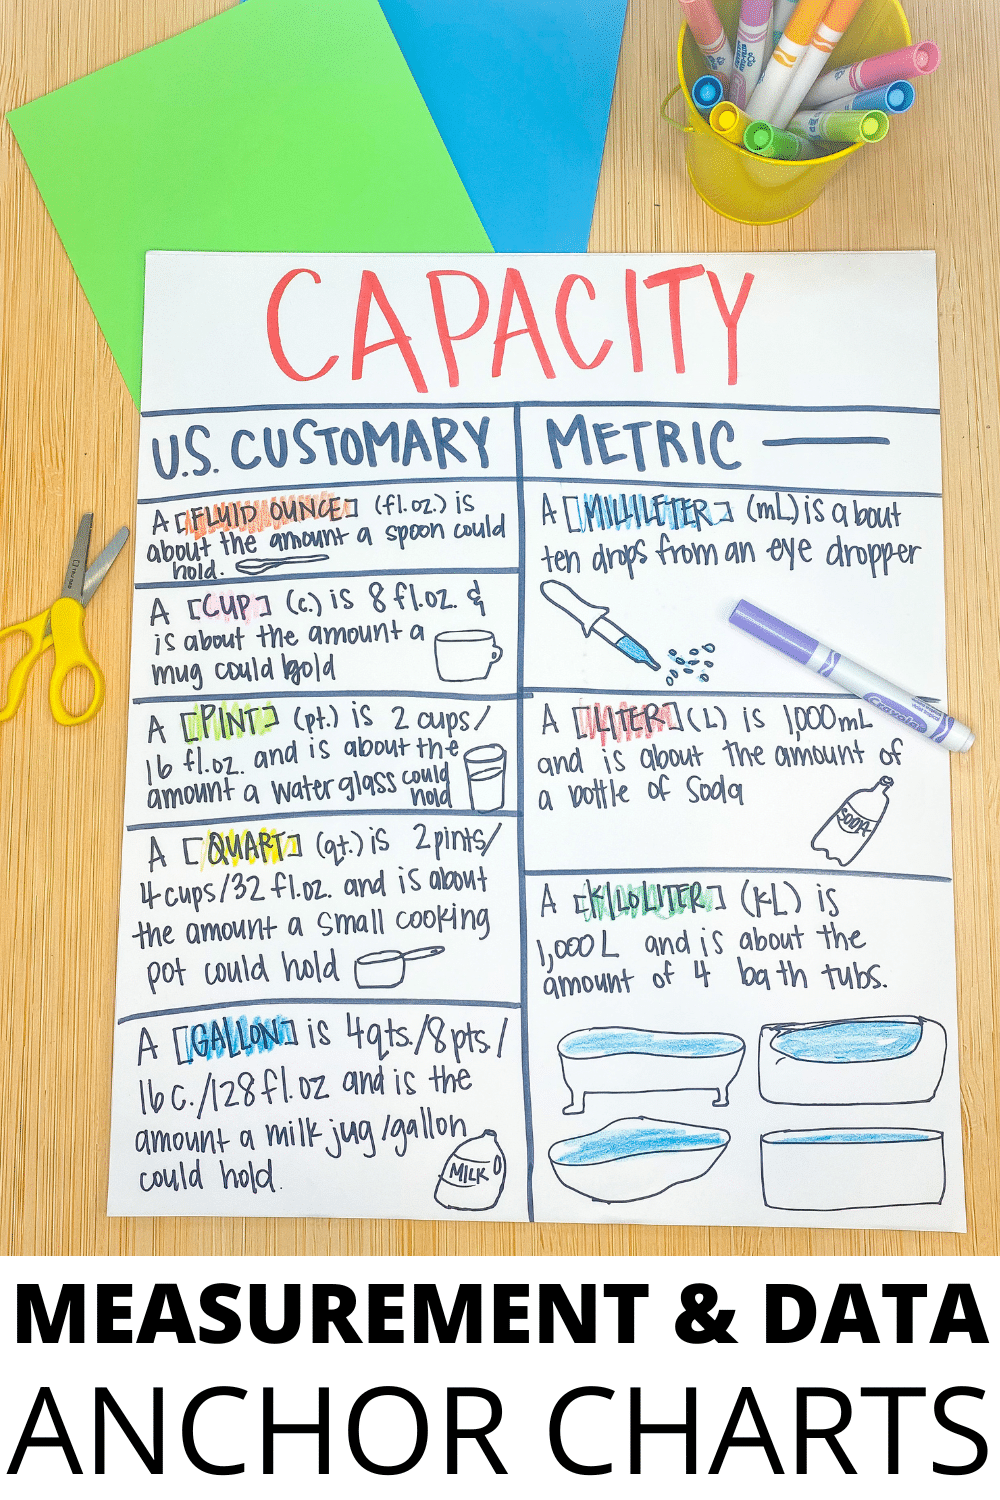 CAPACITY
U.S. CUSTOMARY
A [FLUID OUNCE] (fl.oz.) is
about the amount a spoon could
hold.
A [CUP] (c.) is 8 fl.oz. &
is about the amount a
mug could hold
A [PINT] (pt.) is 2 cups/
16 fl.oz. and is about the
amount a water glass could
hold
A [QUART] (qt.) is 2pints/
4cups/32 fl.oz. and is about
the amount a small cooking
pot could hold
A [GALLON] is 4qts./8pts./
16c./128fl.oz and is the
amount a milk jug/gallon
could hold.
MILK
METRIC
A [MILLILETER] (mL) is about
ten drops from an eye dropper
A [LITER] (L) is 1,000mL
and is about the amount of
a bottle of Soda
SODA
A [KILOLITER] (kL) is
1,000L and is about the
amount of 4 bath tubs.
Crayola
MEASUREMENT & DATA
ANCHOR CHARTS